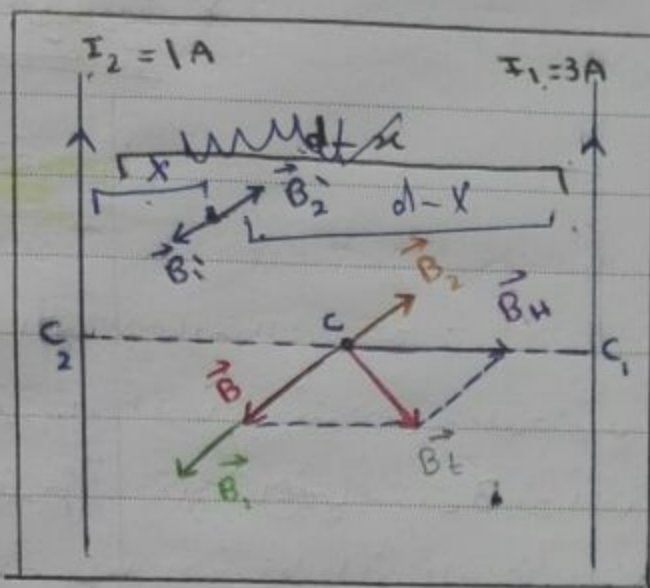 I₂ = 1A
I₁ = 3A
x
d-x
B⃗₂'
B⃗₁'
B⃗₂
B⃗H
C₂
C
C₁
B⃗
B⃗t
B⃗₁